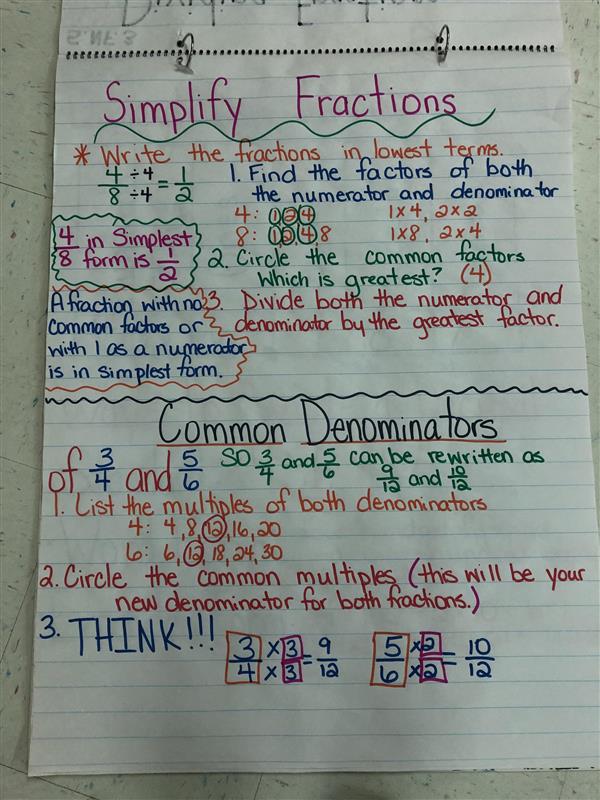 Dividing Fractions
5.NF.3
Simplify Fractions
* Write the fractions in lowest terms.
4 ÷4 = 1
8 ÷4 2
1. Find the factors of both
the numerator and denominator
4: 1 2 4 1x4, 2x2
8: 1, 2, 4, 8 1x8, 2x4
4/8 in Simplest
form is 1/2
2. Circle the common factors
Which is greatest? (4)
A fraction with no
common factors or
with 1 as a numerator
is in simplest form.
3. Divide both the numerator and
denominator by the greatest factor.
Common Denominators
of 3/4 and 5/6 SO 3/4 and 5/6 can be rewritten as
9/12 and 10/12
1. List the multiples of both denominators
4: 4, 8, 12, 16, 20
6: 6, 12, 18, 24, 30
2. Circle the common multiples (this will be your
new denominator for both fractions.)
3. THINK!!!
3 x3 = 9
4 x3 12
5 x2 = 10
6 x2 12